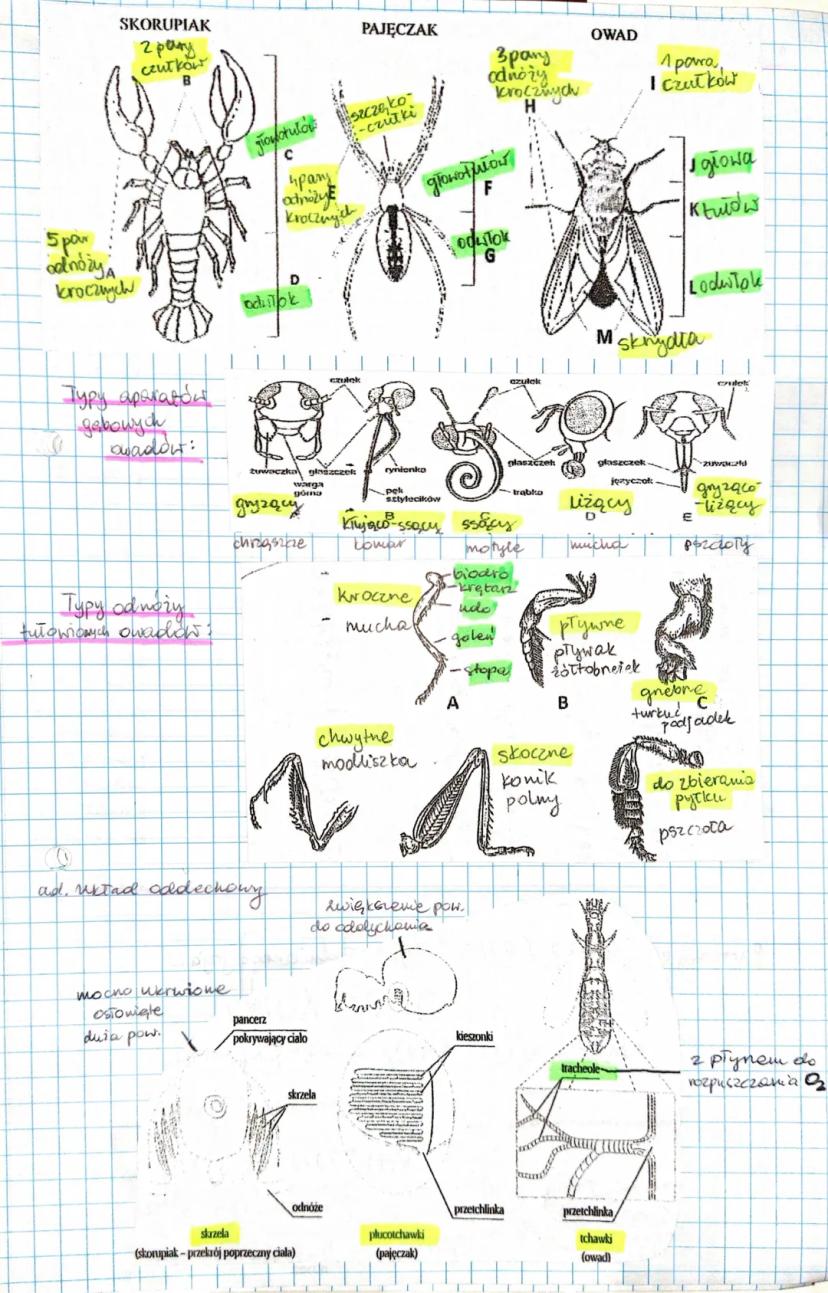 SKORUPIAK
PAJĘCZAK
OWAD
2 pary
czułków
B
głowotułów
C
5 par
odnóży
A
krocznych
D
odwłok
szczęko-
-czułki
4 pary
E
odnóży
krocznych
głowotułów
F
odwłok
G
3 pary
odnóży
krocznych
H
1 para
I czułków
J głowa
K tułów
L odwłok
M skrzydła
Typy aparatów
gębowych
owadów:
czułek
czułek
czułek
żuwaczka
głaszczek
rynienka
głaszczek
głaszczek
żuwaczki
warga
górna
pęk
sztylecików
trąbka
języczek
gryzący
A
kłująco-ssący
B
ssący
C
liżący
D
gryząco-
-liżący
E
chrząszcze
komar
motyle
mucha
pszczoły
Typy odnóży
tułowiowych owadów:
kroczne
mucha
biodro
krętarz
udo
goleń
stopa
A
pływne
pływak
żółtobrzeżek
B
grzebne
C
turkuć
podjadek
chwytne
modliszka
skoczne
konik
polny
do zbierania
pyłku
pszczoła
ad. układ oddechowy
zwiększenie pow.
do oddychania
mocno ukrwione
osłonięte
duża pow.
pancerz
pokrywający ciało
skrzela
odnóże
skrzela
(skorupiak – przekrój poprzeczny ciała)
kieszonki
przetchlinka
płucotchawki
(pajęczak)
tracheole
z płynem do
rozpuszczania O₂
przetchlinka
tchawki
(owad)